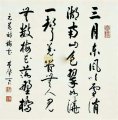 三月東風吹雪消
湖南山色翠如澆
一聲羌管無人見
無數梅花落野橋